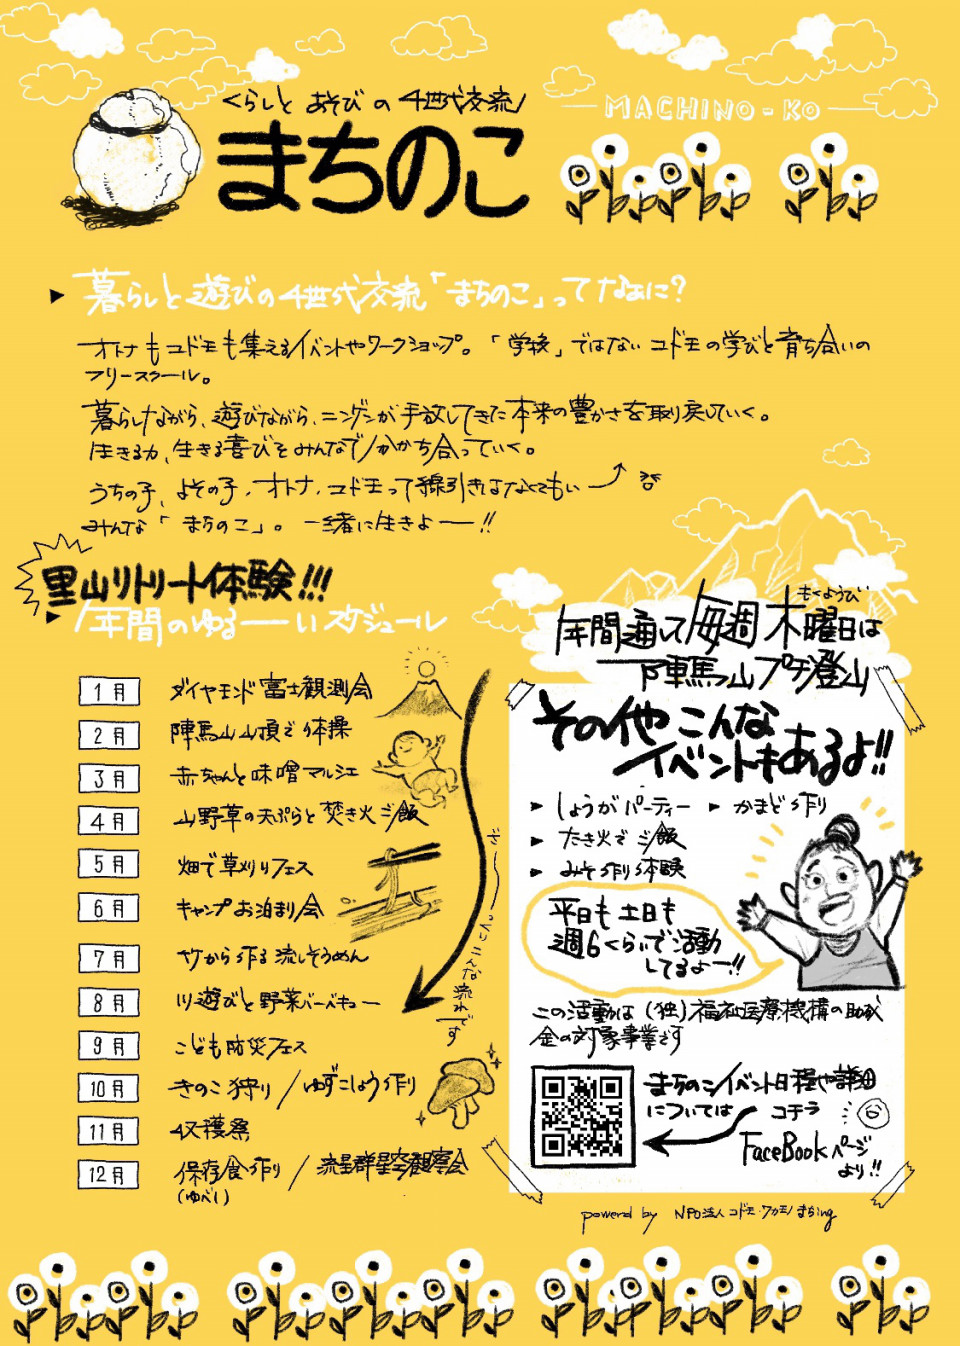 くらしと あそびの 4世代交流
まちのこ
MACHINO-KO
暮らしと遊びの4世代交流「まちのこ」ってなぁに?
オトナもコドモも集えるイベントやワークショップ。「学校」ではないコドモの学びと育ち合いの
フリースクール。
暮らしながら、遊びながら、ニンゲンが手放してきた本来の豊かさを取り戻していく。
生きる力、生きる喜びをみんなで分かち合っていく。
うちの子、よその子、オトナ、コドモって線引きはなくてもいー
みんな「まちのこ」。一緒に生きよー!!
里山リトリート体験!!!
年間のゆるーいスケジュール
1月 ダイヤモンド富士観測会
2月 陣馬山山頂で体操
3月 赤ちゃんと味噌マルシェ
4月 山野草の天ぷらと焚き火ご飯
5月 畑で草刈りフェス
6月 キャンプお泊まり会
7月 竹から作る流しそうめん
8月 川遊びと野菜バーベキュー
9月 こども防災フェス
10月 きのこ狩り/ゆずこしょう作り
11月 収穫祭
12月 保存食作り/流星群星空観察会
(ゆべし)
ざーっとこんな流れです
もくようび
年間通して毎週木曜日は
陣馬山プチ登山
その他こんな
イベントもあるよ!!
しょうがパーティー
かまど作り
たき火でご飯
みそ作り体験
平日も土日も
週6くらいで活動
してるよー!!
この活動は(独)福祉医療機構の助成
金の対象事業です
まちのこイベント日程や詳細
については コチラ
FaceBookページ
より!!
powered by NPO法人コドモ・ワカモノまちing